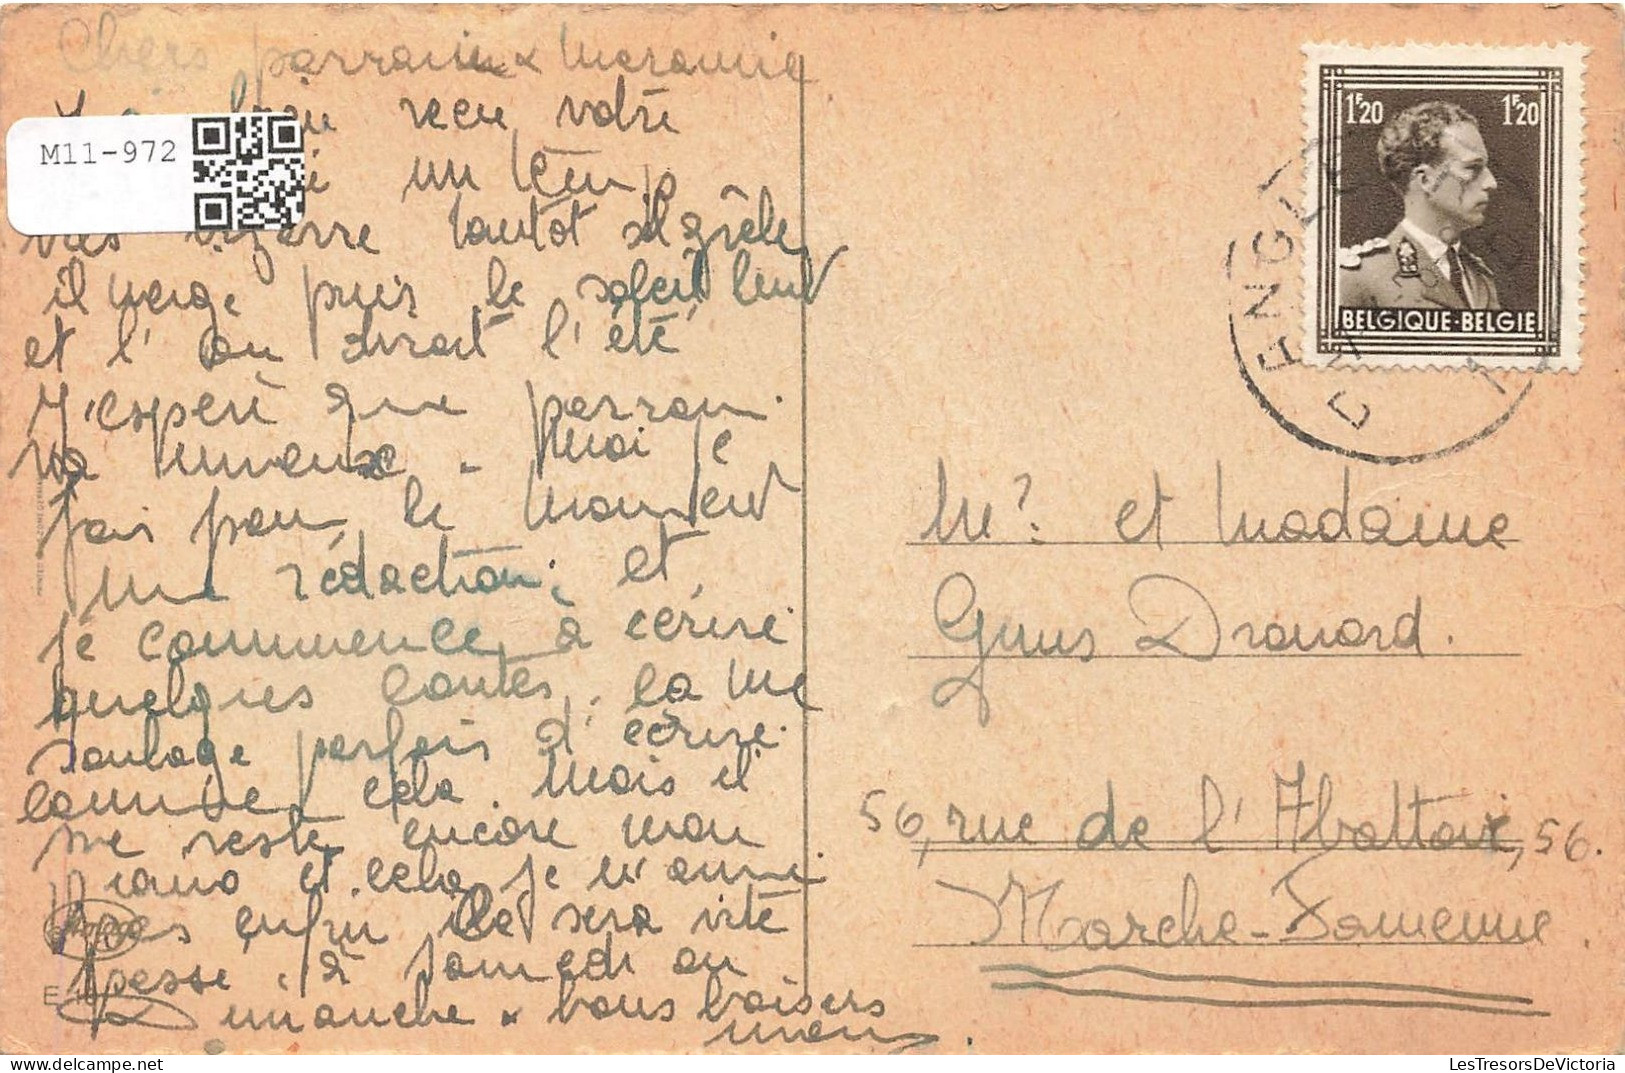 Chers parrain & marraine
reçu votre
M11-972
un temp
très bizarre tantôt il grêle,
il neige puis le soleil luit
et l'on dirait l'été
J'espere que parrain
va mieux. Moi je
fais pour le moment
une rédaction, et
je commence à écrire
quelques contes. Ca me
soulage parfois d'écrire
comme cela. Mais il
me reste encore mon
piano et cela je m'ennui
pas enfin ce sera vite
passé. à samedi ou
dimanche. bons baisers
E
1F20 1F20
BELGIQUE-BELGIE
ENGL
Mr. et Madame
Drouard.
56, rue de l'Abattoir, 56.
Marche-Famenne.
LesTresorsDeVictoria